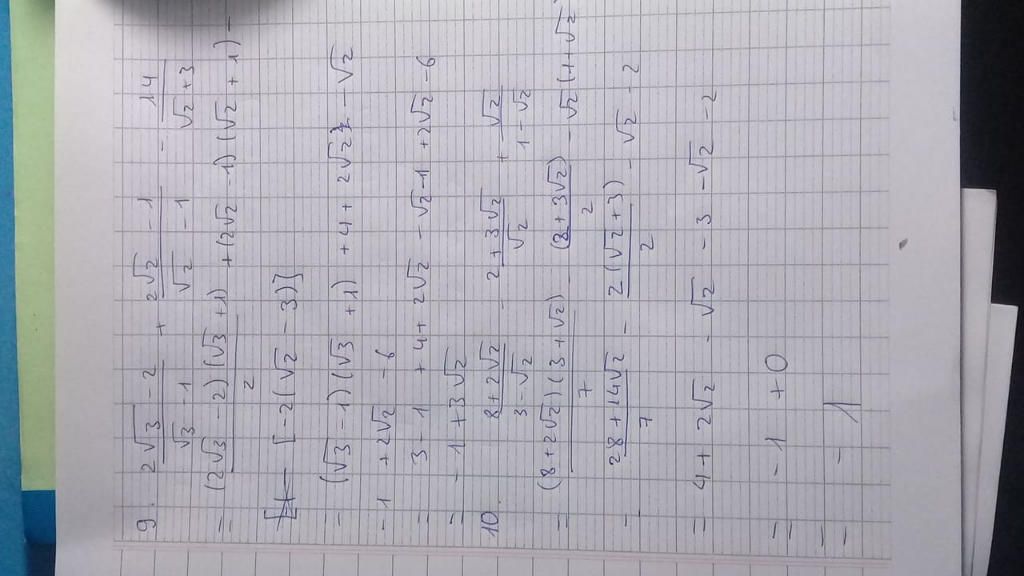 9. (2√3 - 2)/(√3 - 1) + (2√2 - 1)/(√2 - 1) - 14/(√2 + 3)
= (2√3 - 2)(√3 + 1)/2 + (2√2 - 1)(√2 + 1) -
[-2(√2 - 3)]
= (√3 - 1)(√3 + 1) + 4 + 2√2 - √2
- 1 + 2√2 - 6
= 3 - 1 + 4 + 2√2 - √2 - 1 + 2√2 - 6
= - 1 + 3√2
10. (8 + 2√2)/(3 - √2) - (2 + 3√2)/√2 + √2/(1 - √2)
= (8 + 2√2)(3 + √2)/7 - (8 + 3√2)/2 - √2(1 + √2)
= (28 + 14√2)/7 - 2(√2 + 3)/2 - √2 - 2
= 4 + 2√2 - √2 - 3 - √2 - 2
= - 1 + 0
= - 1